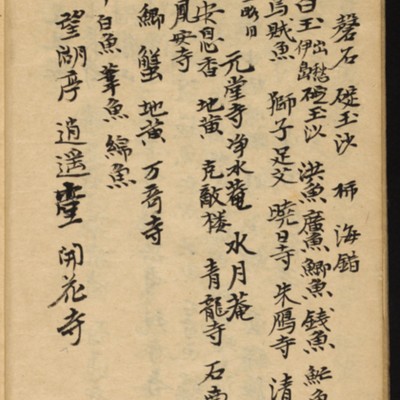 磬石 礎玉沙 柿 海錯
白玉 出 伊島 玉沙 洪魚 廣魚 鯽魚 銭魚
烏賊魚 獅子足父 曉日寺 朱鴈寺 清
元堂寺 浄水菴 水月菴
安息香 地黄 克敵楼 青龍寺 石南
鳳安寺
鯽 蟹 地黄 万奇寺
白魚 葦魚 綿魚
望湖亭 逍遥臺 開花寺